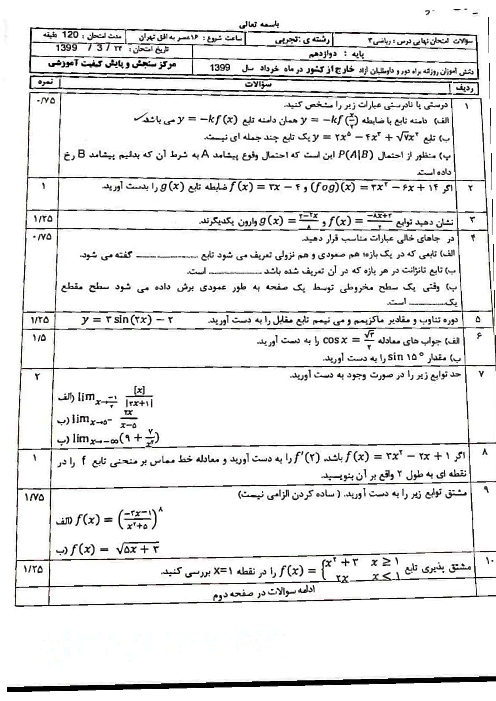 باسمه تعالی
سؤالات امتحان نهایی درس: ریاضی۳ رشته ی: تجربی ساعت شروع: ۱۶عصر به افق تهران مدت امتحان: 120 دقیقه
پایه: دوازدهم تاریخ امتحان: ۲۲ / 3 / 1399
دانش آموزان روزانه، راه دور و داوطلبان آزاد خارج از کشور در ماه خرداد سال 1399 مرکز سنجش و پایش کیفیت آموزشی
ردیف سؤالات نمره
۱ درستی یا نادرستی عبارات زیر را مشخص کنید. ۰/۷۵
الف) دامنه تابع با ضابطه y = −kf(x/۲) همان دامنه تابع y = −kf(x) می باشد.
ب) تابع y = ۲x⁵ − ۴x³ + √۷x² یک تابع چند جمله ای نیست.
پ) منظور از احتمال P(A|B) این است که احتمال وقوع پیشامد A به شرط آن که بدانیم پیشامد B رخ
داده است.
۲ اگر (fog)(x) = ۳x² − ۶x + ۱۴ و f(x) = ۳x − ۴ ضابطه تابع g(x) را بدست آورید. ۱
۳ نشان دهید توابع f(x) = (−۸x+۲)/۲ و g(x) = (۲−۲x)/۸ وارون یکدیگرند. ۱/۲۵
۴ در جاهای خالی عبارات مناسب قرار دهید. ۰/۷۵
الف) تابعی که در یک بازه؛ هم صعودی و هم نزولی تعریف می شود تابع .................... گفته می شود.
ب) تابع تانژانت در هر بازه که در آن تعریف شده باشد .................... است.
پ) وقتی یک سطح مخروطی توسط یک صفحه به طور عمودی برش داده می شود سطح مقطع
یک.................... است.
۵ دوره تناوب و مقادیر ماکزیمم و می نیمم تابع مقابل را به دست آورید. y = ۳ sin(۲x) − ۲ ۱/۲۵
۶ الف) جواب های معادله cos x = √۳/۲ را به دست آورید. ۱/۵
ب) مقدار sin ۱۵° را به دست آورید.
۷ حد توابع زیر را در صورت وجود به دست آورید. ۲
الف) lim x→−۱/۲ [x]/|۲x+۱|
ب) lim x→۵⁻ ۲x/(x−۵)
پ) lim x→−∞ (۹ + ۷/x²)
۸ اگر f(x) = ۳x² − ۲x + ۱ باشد، f′(۲) را به دست آورید و معادله خط مماس بر منحنی تابع f را در ۱
نقطه ای به طول ۲ واقع بر آن بنویسید.
۹ مشتق توابع زیر را به دست آورید. ( ساده کردن الزامی نیست) ۱/۷۵
الف) f(x) = ((−۳x−۱)/(x²+۵))⁸
ب) f(x) = √(۵x + ۳)
۱۰ مشتق پذیری تابع f(x) = { x² + ۳ x ≥ ۱ ; ۲x x < ۱ را در نقطه x=۱ بررسی کنید. ۱/۲۵
ادامه سوالات در صفحه دوم